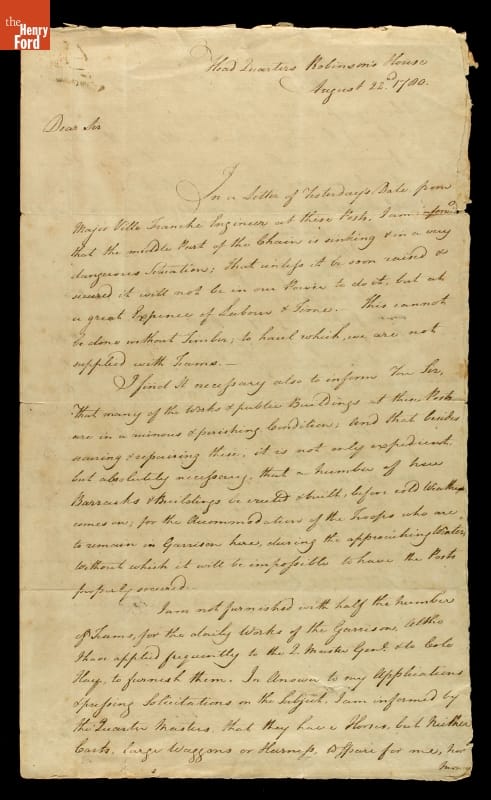 the
Henry
Ford
Head Quarters Robinson's House
August 22d 1780.
Dear Sir
In a Letter of Yesterday's Date from
Major Ville Franche Engineer at these Posts, I am inform'd
that the middle Part of the Chain is sinking & in a very
dangerous Situation; That unless it be soon raised &
secured it will not be in our Power to do it, but at
a great Expence of Labour & Time. This cannot
be done without Timber; to haul which, we are not
supplied with Teams.—
I find it necessary also to inform You Sir,
That many of the Works & public Buildings at these Posts
are in a ruinous & perishing Condition; And that besides
securing & repairing these, it is not only expedient
but absolutely necessary, that a number of new
Barracks & Buildings be erected & built, before cold Weather
comes on; for the Accommodation of the Troops who are
to remain in Garrison here, during the approaching Winter,
Without which it will be impossible to have the Posts
properly secured.
I am not furnished with half the number
of Teams, for the daily Works of the Garrison, Altho
I have applied frequently to the Q. Master Genl. & to Colo
Hay, to furnish them. In Answer to my Applications
& pressing Solicitations on the Subject, I am informed by
the Quarter Masters, that they have Horses, but Neither
Carts, large Waggons or Harness, to spare for me, nor
money